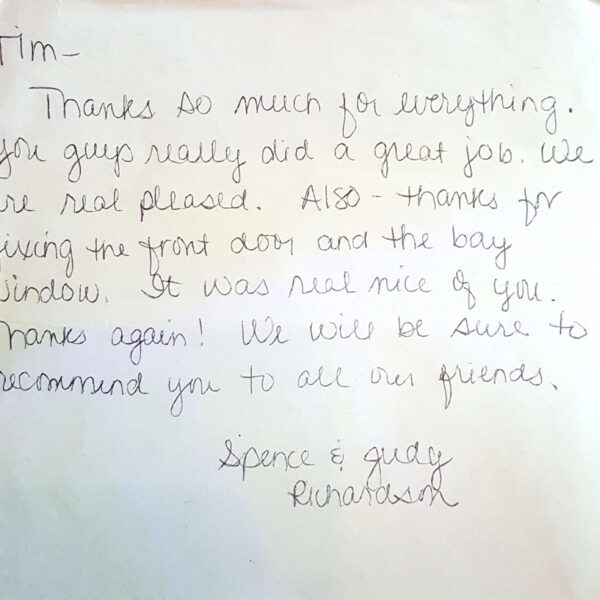 Tim-
Thanks so much for everything.
you guys really did a great job. We
re real pleased. Also - thanks for
fixing the front door and the bay
window. It was real nice of you.
Thanks again! We will be sure to
recommend you to all our friends.
Spence & Judy
Richardson